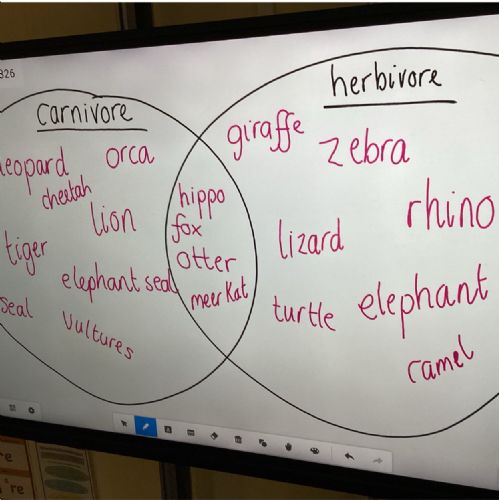 826
carnivore
leopard
orca
cheetah
lion
tiger
elephant seal
seal
vultures
hippo
fox
otter
meerkat
herbivore
giraffe
zebra
rhino
lizard
turtle
elephant
camel